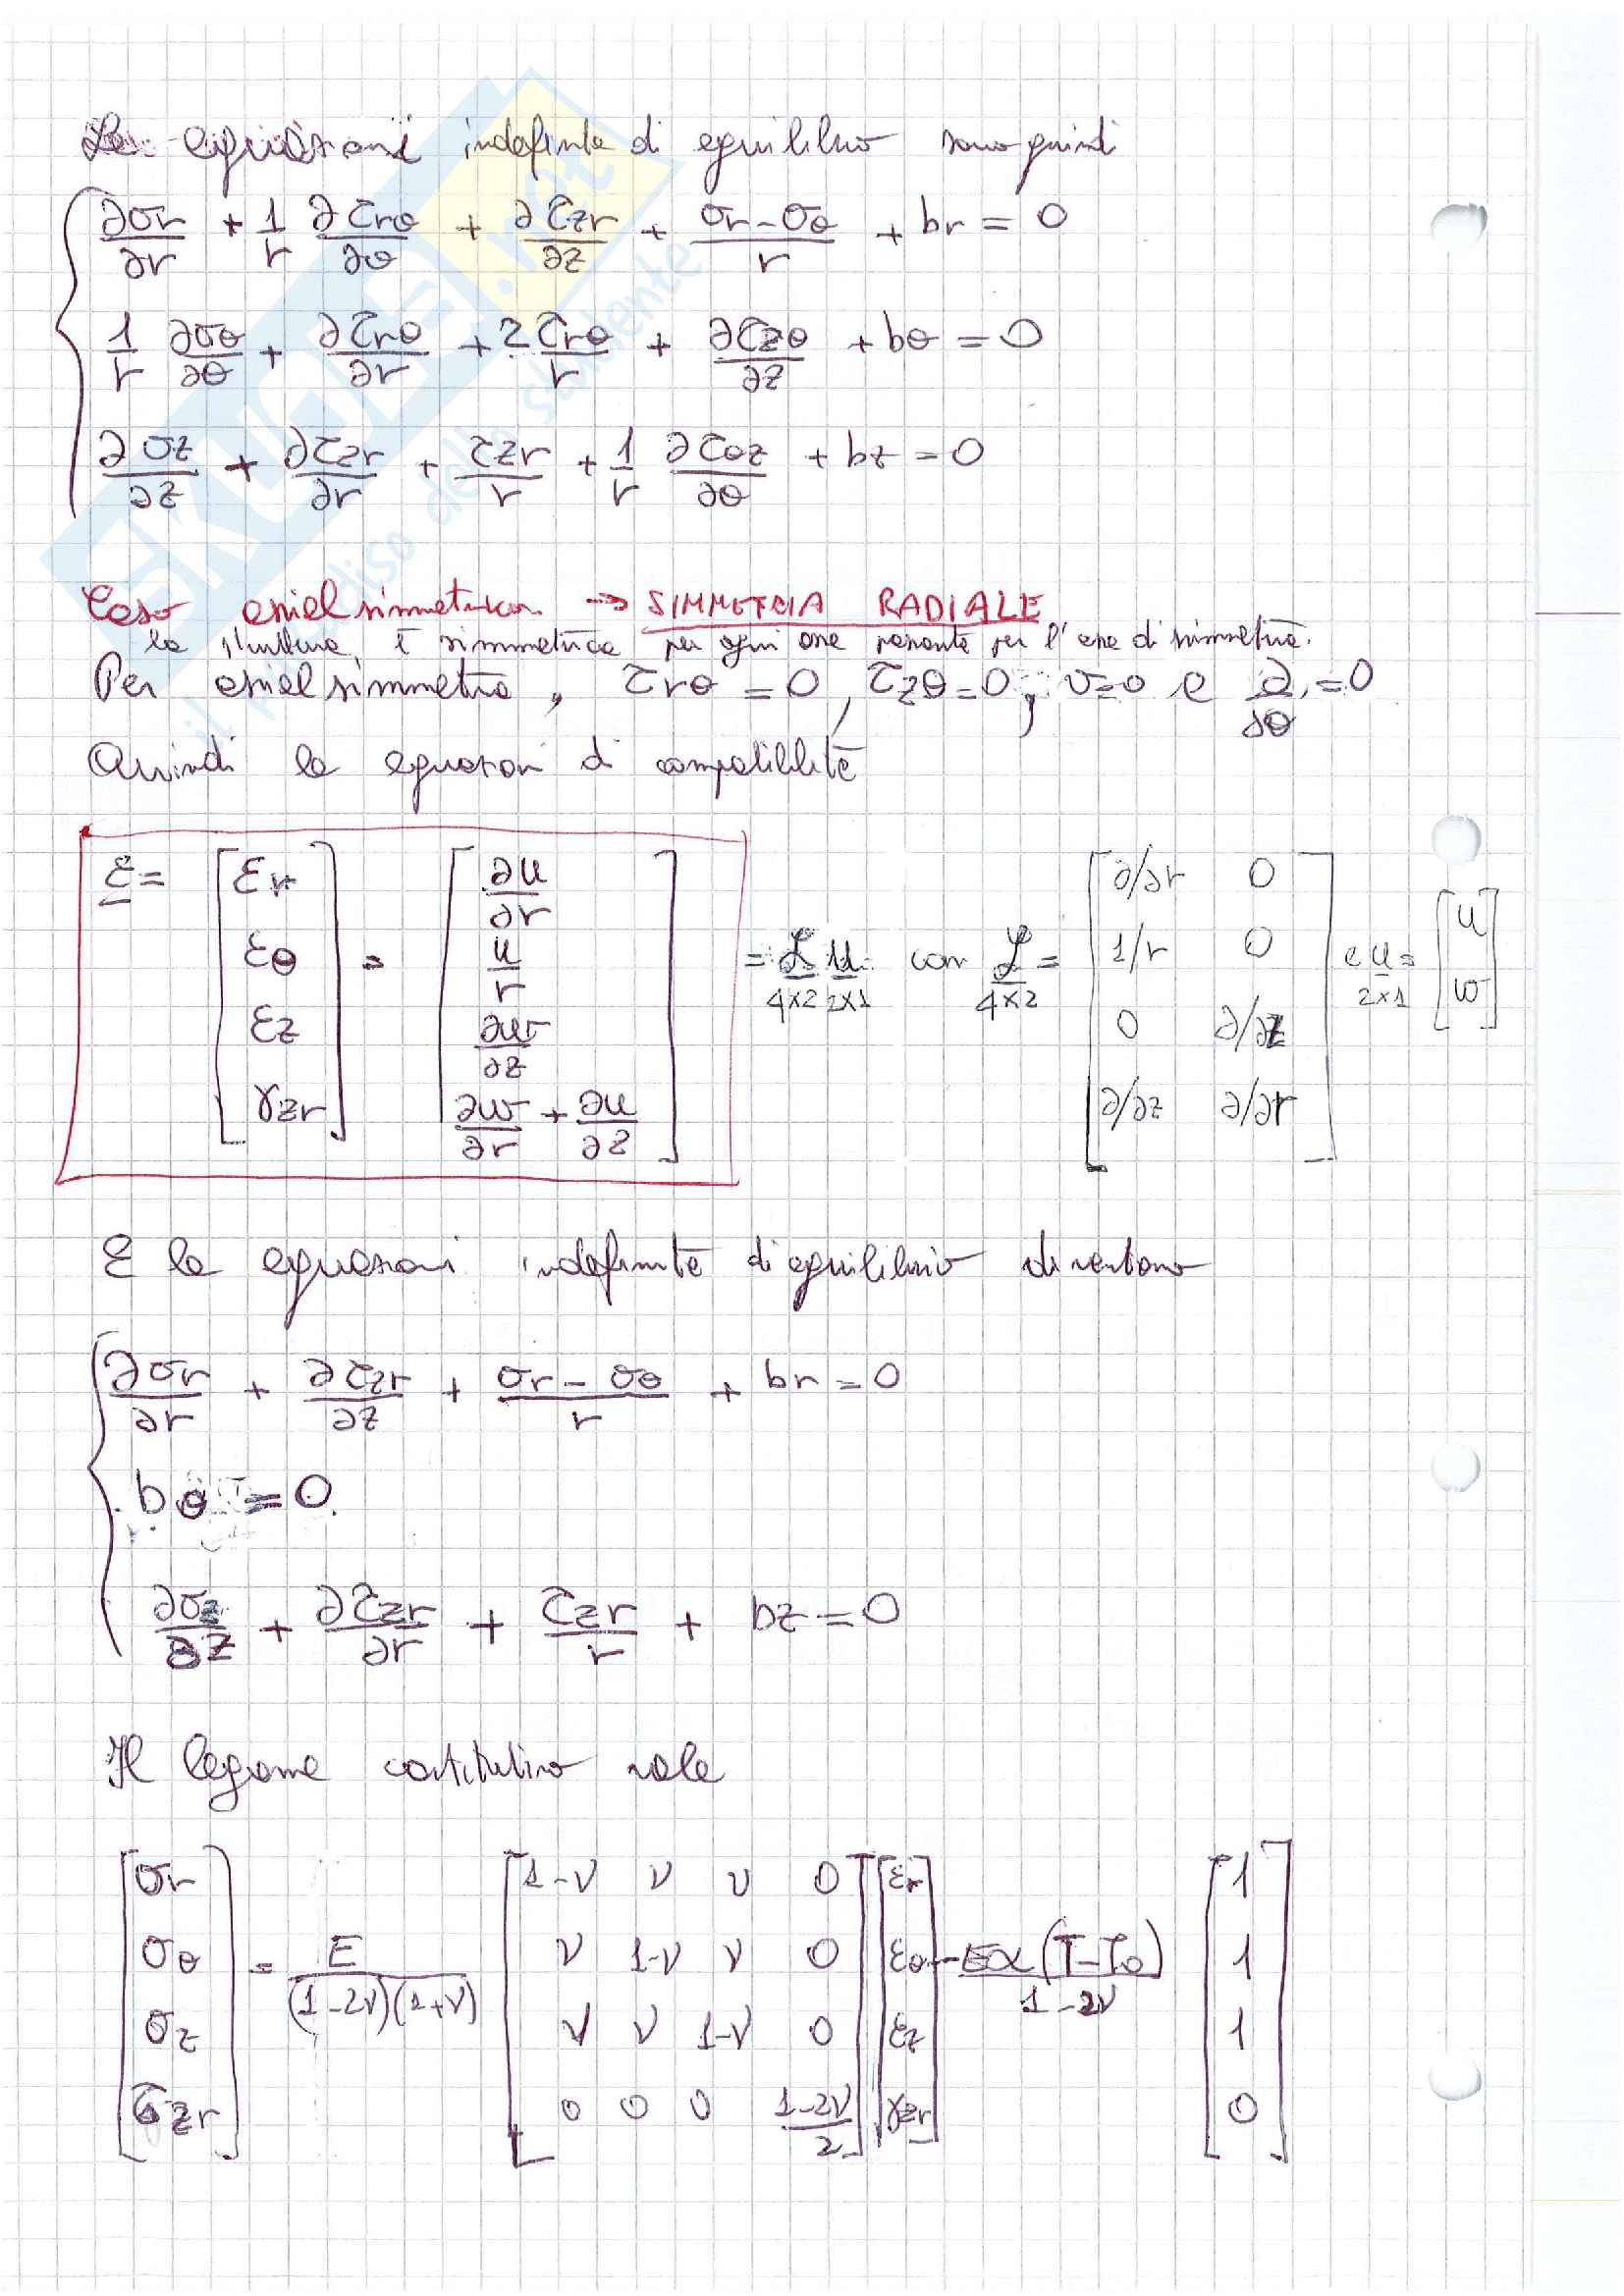 Le equazioni indefinite di equilibrio sono quindi
∂σr/∂r + 1/r ∂τrθ/∂θ + ∂τzr/∂z + (σr-σθ)/r + br = 0
1/r ∂σθ/∂θ + ∂τrθ/∂r + 2τrθ/r + ∂τzθ/∂z + bθ = 0
∂σz/∂z + ∂τzr/∂r + τzr/r + 1/r ∂τθz/∂θ + bz = 0
Caso assialsimmetrico → SIMMETRIA RADIALE
la struttura è simmetrica per ogni asse passante per l'asse di simmetria.
Per assialsimmetria, τrθ = 0, τzθ = 0, v = 0 e ∂/∂θ = 0
Quindi le equazioni di compatibilità
ε = [εr εθ εz γzr] = [∂u/∂r u/r ∂w/∂z ∂w/∂r + ∂u/∂z] = ℒ u con ℒ = [∂/∂r 0 1/r 0 0 ∂/∂z ∂/∂z ∂/∂r] e u = [u w]
4×2 2×1 4×2 2×1
E le equazioni indefinite di equilibrio diventano
∂σr/∂r + ∂τzr/∂z + (σr - σθ)/r + br = 0
bθ = 0
∂σz/∂z + ∂τzr/∂r + τzr/r + bz = 0
Il legame costitutivo vale
[σr] [1-ν ν ν 0] [εr] [1]
[σθ] = E/((1-2ν)(1+ν)) [ν 1-ν ν 0] [εθ] - Eα(T-T0)/(1-2ν) [1]
[σz] [ν ν 1-ν 0] [εz] [1]
[τzr] [0 0 0 (1-2ν)/2] [γzr] [0]
SKUOLA.net
il paradiso dello studente